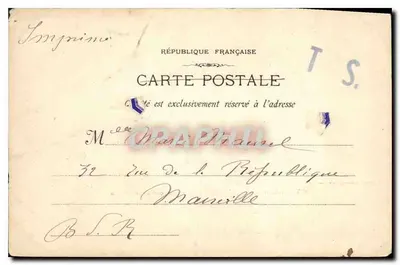 Imprimé
RÉPUBLIQUE FRANÇAISE
T S.
CARTE POSTALE
Ce côté est exclusivement réservé à l'adresse
Melle
32 rue de la République
Marseille
B. d. R